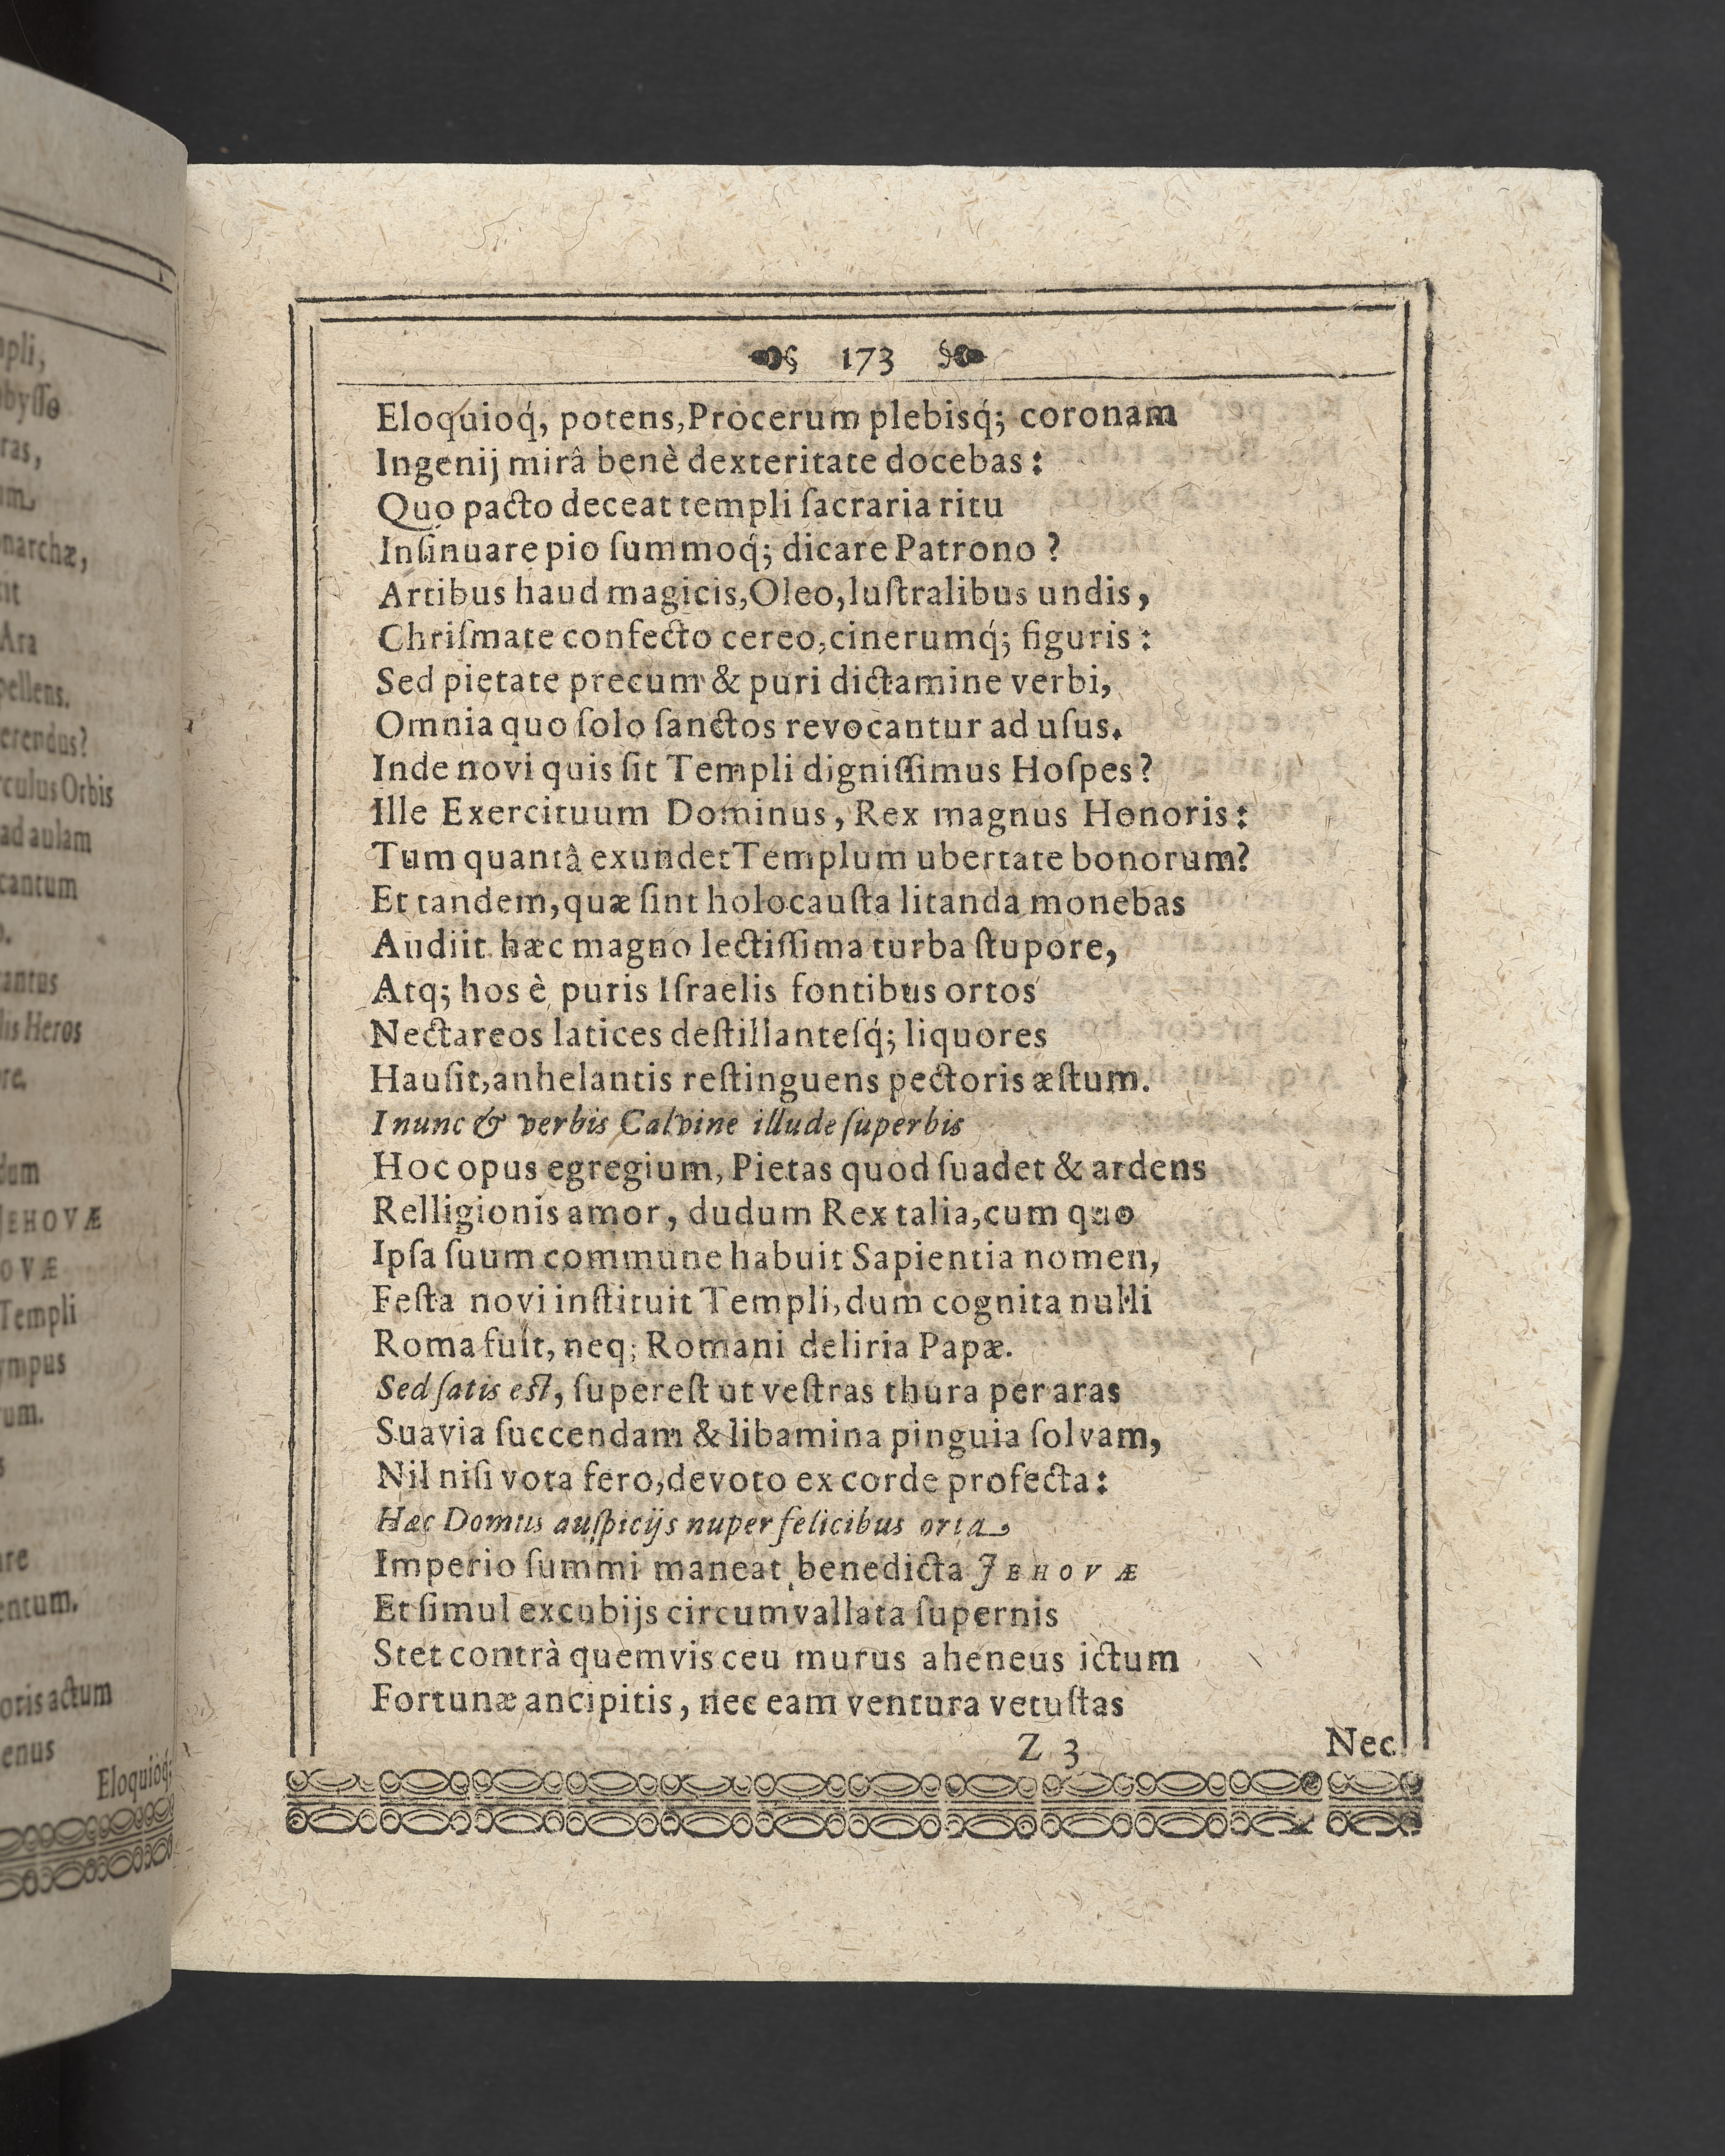 pli,
byſſo
ras,
um
narchæ,
it
Ara
pellens.
erendus?
rculus Orbis
ad aulam
cantum
o.
antus
lis Heros
re.
dum
JEHOVÆ
OVÆ
Templi
ympus
rum.
s
are
entum.
oris actum
enus
Eloquioq́;
173
Eloquioq́, potens, Procerum plebisq́; coronam
Ingenij mirâ benè dexteritate docebas:
Quo pacto deceat templi ſacraria ritu
Inſinuare pio ſummoq́; dicare Patrono?
Artibus haud magicis, Oleo, luſtralibus undis,
Chriſmate confecto cereo, cinerumq́; figuris:
Sed pietate precum & puri dictamine verbi,
Omnia quo ſolo ſanctos revocantur ad uſus.
Inde novi quis ſit Templi digniſſimus Hoſpes?
Ille Exercituum Dominus, Rex magnus Honoris:
Tum quantâ exundet Templum ubertate bonorum?
Et tandem, quæ ſint holocauſta litanda monebas
Audiit hæc magno lectiſſima turba ſtupore,
Atq; hos è puris Iſraelis fontibus ortos
Nectareos latices deſtillanteſq́; liquores
Hauſit, anhelantis reſtinguens pectoris æſtum.
I nunc & verbis Calvine illude ſuperbis
Hoc opus egregium, Pietas quod ſuadet & ardens
Relligionis amor, dudum Rex talia, cum quo
Ipſa ſuum commune habuit Sapientia nomen,
Feſta novi inſtituit Templi, dum cognita nulli
Roma fuit, neq; Romani deliria Papæ.
Sed ſatis eſt, ſupereſt ut veſtras thura per aras
Suavia ſuccendam & libamina pinguia ſolvam,
Nil niſi vota fero, devoto ex corde profecta:
Hæc Domus auſpicijs nuper felicibus orta
Imperio ſummi maneat benedicta JEHOVÆ
Et ſimul excubijs circumvallata ſupernis
Stet contrà quemvis ceu murus aheneus ictum
Fortunæ ancipitis, nec eam ventura vetuſtas
Z 3 Nec